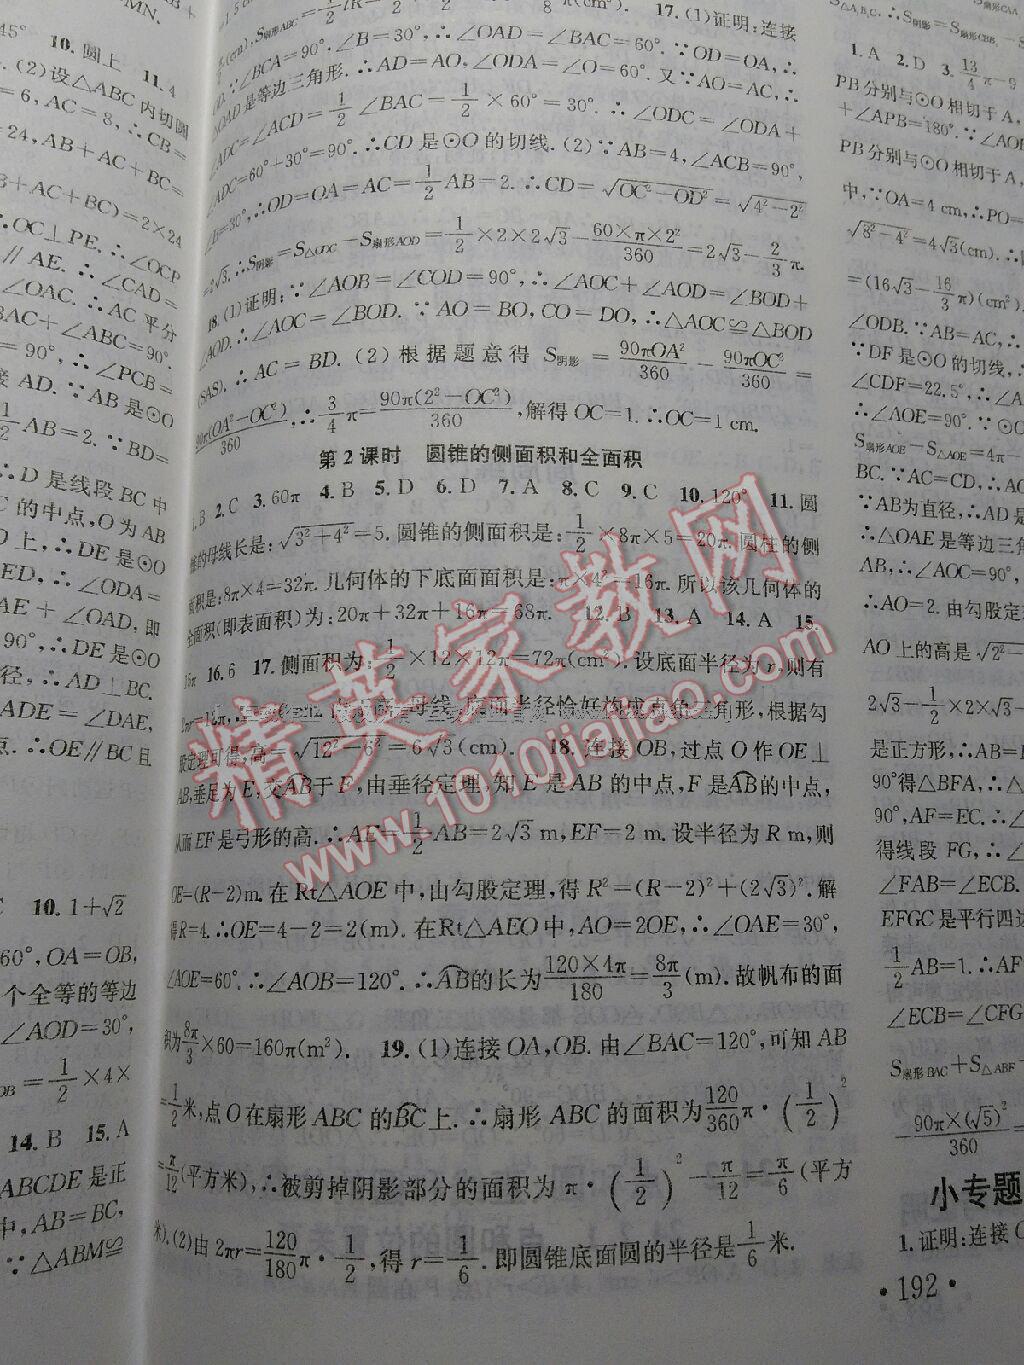 MN.
45°
10. 圆上 11. 4
(2)设△ABC 内切圆
=6, AC=8, ∴CB=
24, AB+AC+BC=
B+AC+BC)=2×24
∴OC⊥PE. ∴∠OCP
∥AE. ∴∠CAD=
∠OAC. ∴AC 平分
BAC+∠ABC=90°.
=90°, ∴∠PCB=
接 AD. ∵AB 是⊙O
1/2 AB=2. ∵BD=
∴D 是线段 BC 中
C 的中点, O 为 AB
O 上, ∴DE 是⊙O
ED, ∴∠ODA=
AE+∠OAD, 即
90°, ∴DE 是⊙O
径, ∴AD⊥BC.
ADE=∠DAE,
∴OE∥BC 且
10. 1+√2
60°, OA=OB,
个全等的等边
∠AOD=30°,
=1/2×4×
14. B 15. A
ABCDE 是正
中, AB=BC,
∵△ABM≌
17. (1)证明:连接
∵∠BCA=90°, ∠B=30°, ∴∠OAD=∠BAC=60°. ∵OD=OA, ∴
△OAD 是等边三角形. ∴AD=AO, ∠ODA=∠O=60°. 又∵AO=AC, ∴
∠ADC=∠ACD=1/2∠BAC=1/2×60°=30°. ∴∠ODC=∠ODA+
∠ADC=60°+30°=90°. ∴CD 是⊙O 的切线. (2)∵AB=4, ∠ACB=90°,
∠B=30°, ∴OD=OA=AC=1/2AB=2. ∴CD=√(OC²−OD²)=√(4²−2²)
=2√3. ∴S阴影=S△ODC−S扇形AOD=1/2×2×2√3−(60×π×2²)/360=2√3−2/3π.
18. (1)证明:∵∠AOB=∠COD=90°, ∴∠AOC+∠AOD=∠BOD+
∠AOD. ∴∠AOC=∠BOD. ∵AO=BO, CO=DO, ∴△AOC≌△BOD
(SAS). ∴AC=BD. (2)根据题意得 S阴影=90πOA²/360−90πOC²/360=
90π(OA²−OC²)/360, ∴3/4π=90π(2²−OC²)/360, 解得 OC=1. ∴OC=1 cm.
第 2 课时 圆锥的侧面积和全面积
1. B 2. C 3. 60π 4. B 5. D 6. D 7. A 8. C 9. C 10. 120° 11. 圆
锥的母线长是:√(3²+4²)=5. 圆锥的侧面积是:1/2×8π×5=20π. 圆柱的侧
面积是:8π×4=32π. 几何体的下底面面积是:π×4²=16π. 所以该几何体的
全面积(即表面积)为:20π+32π+16π=68π. 12. B 13. A 14. A 15.
16. 6 17. 侧面积为:1/2×12×12π=72π(cm²). 设底面半径为 r, 则有
母线、底面半径恰好构成直角三角形, 根据勾
股定理可得, 高=√(12²−6²)=6√3(cm). 18. 连接 OB, 过点 O 作 OE⊥
AB, 垂足为 E, 交AB于 F, 由垂径定理, 知 E 是 AB 的中点, F 是AB的中点,
从而 EF 是弓形的高. ∴AE=1/2AB=2√3 m, EF=2 m. 设半径为 R m, 则
OE=(R−2)m. 在 Rt△AOE 中, 由勾股定理, 得 R²=(R−2)²+(2√3)². 解
得 R=4. ∴OE=4−2=2(m). 在Rt△AEO 中, AO=2OE, ∴∠OAE=30°,
∠AOE=60°. ∴∠AOB=120°. ∴AB的长为(120×4π)/180=8π/3(m). 故帆布的面
积为8π/3×60=160π(m²). 19. (1)连接 OA, OB. 由∠BAC=120°, 可知 AB
=1/2米, 点 O 在扇形 ABC 的BC上. ∴扇形 ABC 的面积为120/360π·(1/2)²
=π/12(平方米), ∴被剪掉阴影部分的面积为 π·(1/2)²−π/12=π/6(平方
米). (2)由 2πr=120/180π·1/2, 得 r=1/6. 即圆锥底面圆的半径是1/6米.
1. A 2. D 3. 13/4π−9
PB 分别与⊙O 相切于 A,
+∠APB=180°. ∵∠AOB
PB 分别与⊙O 相切于 A,
中, ∵OA=4 cm, ∴PO=
√(8²−4²)=4√3(cm).
=(16√3−16/3π)(cm²).
∠ODB. ∵AB=AC, ∴
∵DF 是⊙O 的切线, ∴
∠CDF=22.5°, ∴∠A
∴∠AOE=90°. ∵⊙O
S扇形AOE−S△AOE=4π−
BC. ∵AC=CD, ∴
∵AB为直径, ∴AD是
∴△OAE 是等边三角
AB, ∴∠AOC=90°,
∴AO=2. 由勾股定
AO 上的高是√
2√3−1/2×2×√3−
是正方形, ∴AB=
90°得△BFA, ∴
90°, AF=EC. ∴
得线段 FG, ∴
∠FAB=∠ECB.
EFGC 是平行四边
1/2AB=1. ∴AF
∠ECB=∠CFG
S扇形BAC+S△ABF
90π×(√5)²/360
小专题
1. 证明:连接
·192·
精英家教网
www.1010jiajiao.com